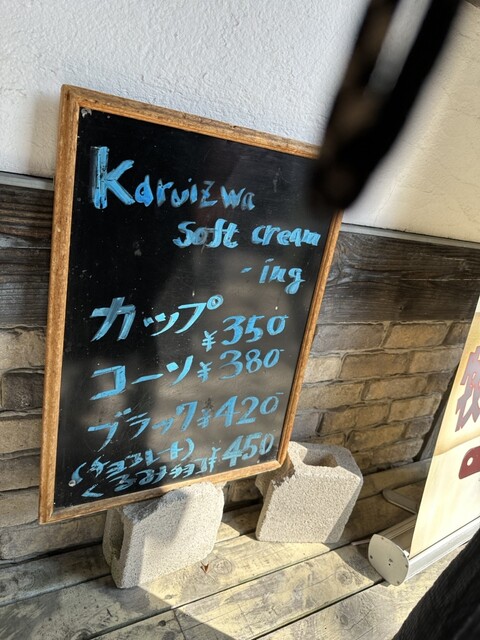 Karuizwa
Soft cream
-ing
カップ ¥350
コーン ¥380
ブラック ¥420
(チョコレート)
¥450